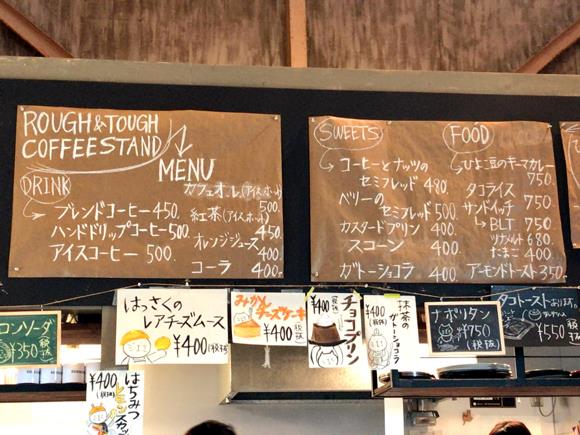 ROUGH & TOUGH
COFFEESTAND
MENU
DRINK
ブレンドコーヒー 450.
ハンドドリップコーヒー 500.
アイスコーヒー 500.
カフェオレ(アイス・ホット)
500.
紅茶(アイス・ホット)
450.
オレンジジュース
400.
コーラ 400.
SWEETS
コーヒーとナッツの
セミフレッド 480.
ベリーの
セミフレッド 500.
カスタードプリン 400.
スコーン 400.
ガトーショコラ 400.
FOOD
ひよこ豆のキーマカレー
750.
タコライス 750.
サンドイッチ
BLT 750
ツナメルト 680.
たまご 400
アーモンドトースト 350.
コンソーダ
¥350(税抜)
はっさくの
レアチーズムース
¥400(税抜)
みかん
チーズケーキ
¥400(税抜)
¥400
(税抜)
チョコプリン
¥400
(税抜)
抹茶の
ガトーショコラ
ナポリタン
¥750
(税抜)
タコトースト
¥550
(税抜)
¥400
(税抜)
はちみつ